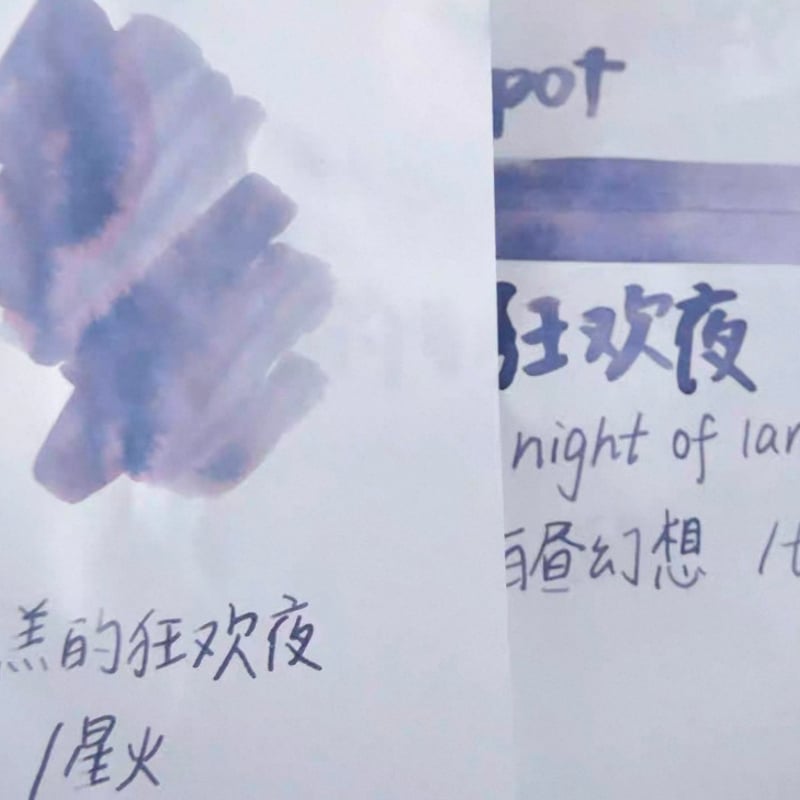 的狂欢夜
/星火
pot
狂欢夜
night of
昼幻想